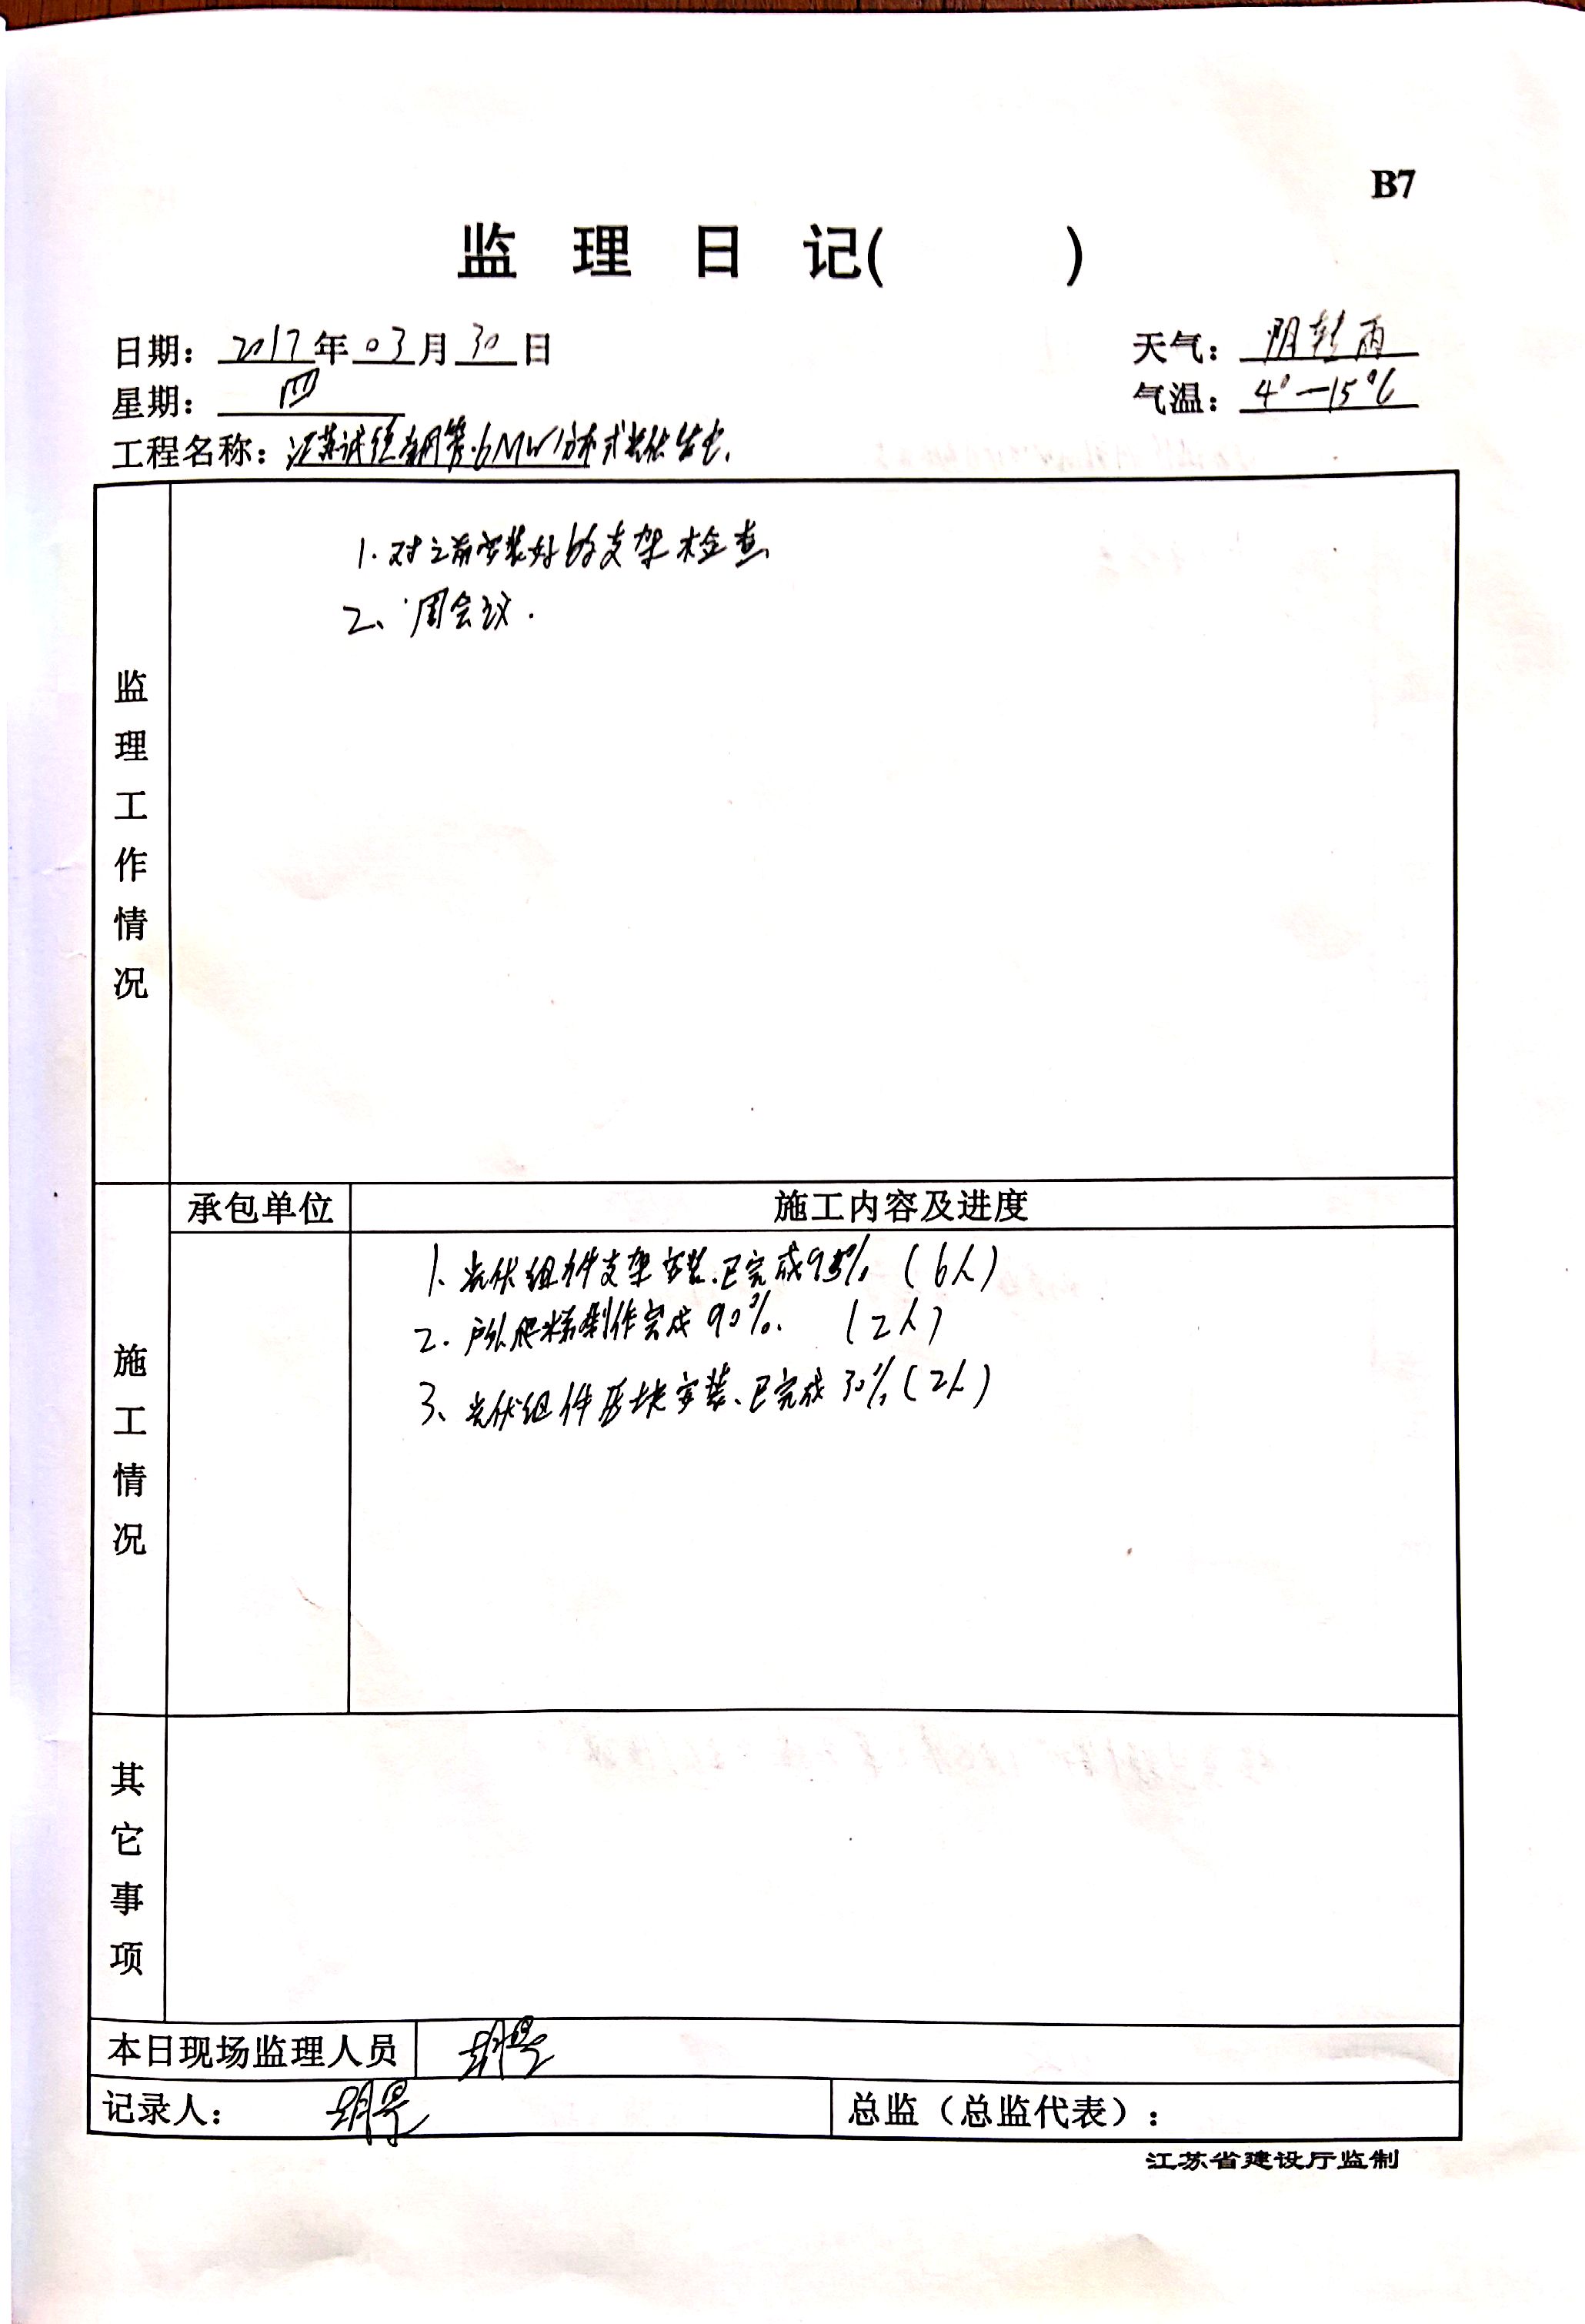 B7
监 理 日 记( )
日期：2017年03月30日
天气：阴转雨
星期：四
气温：4°—15℃
工程名称：江苏诚德钢管.6MW分布式光伏发电.
监理工作情况
1.对之前安装好的支架检查
2、周会议.
承包单位
施工内容及进度
施工情况
1、光伏组件支架安装.已完成95%（6人）
2.户外爬梯制作完成90%.（2人）
3、光伏组件压块安装、已完成30%（2人）
其它事项
本日现场监理人员
记录人：
总监（总监代表）：
江苏省建设厅监制